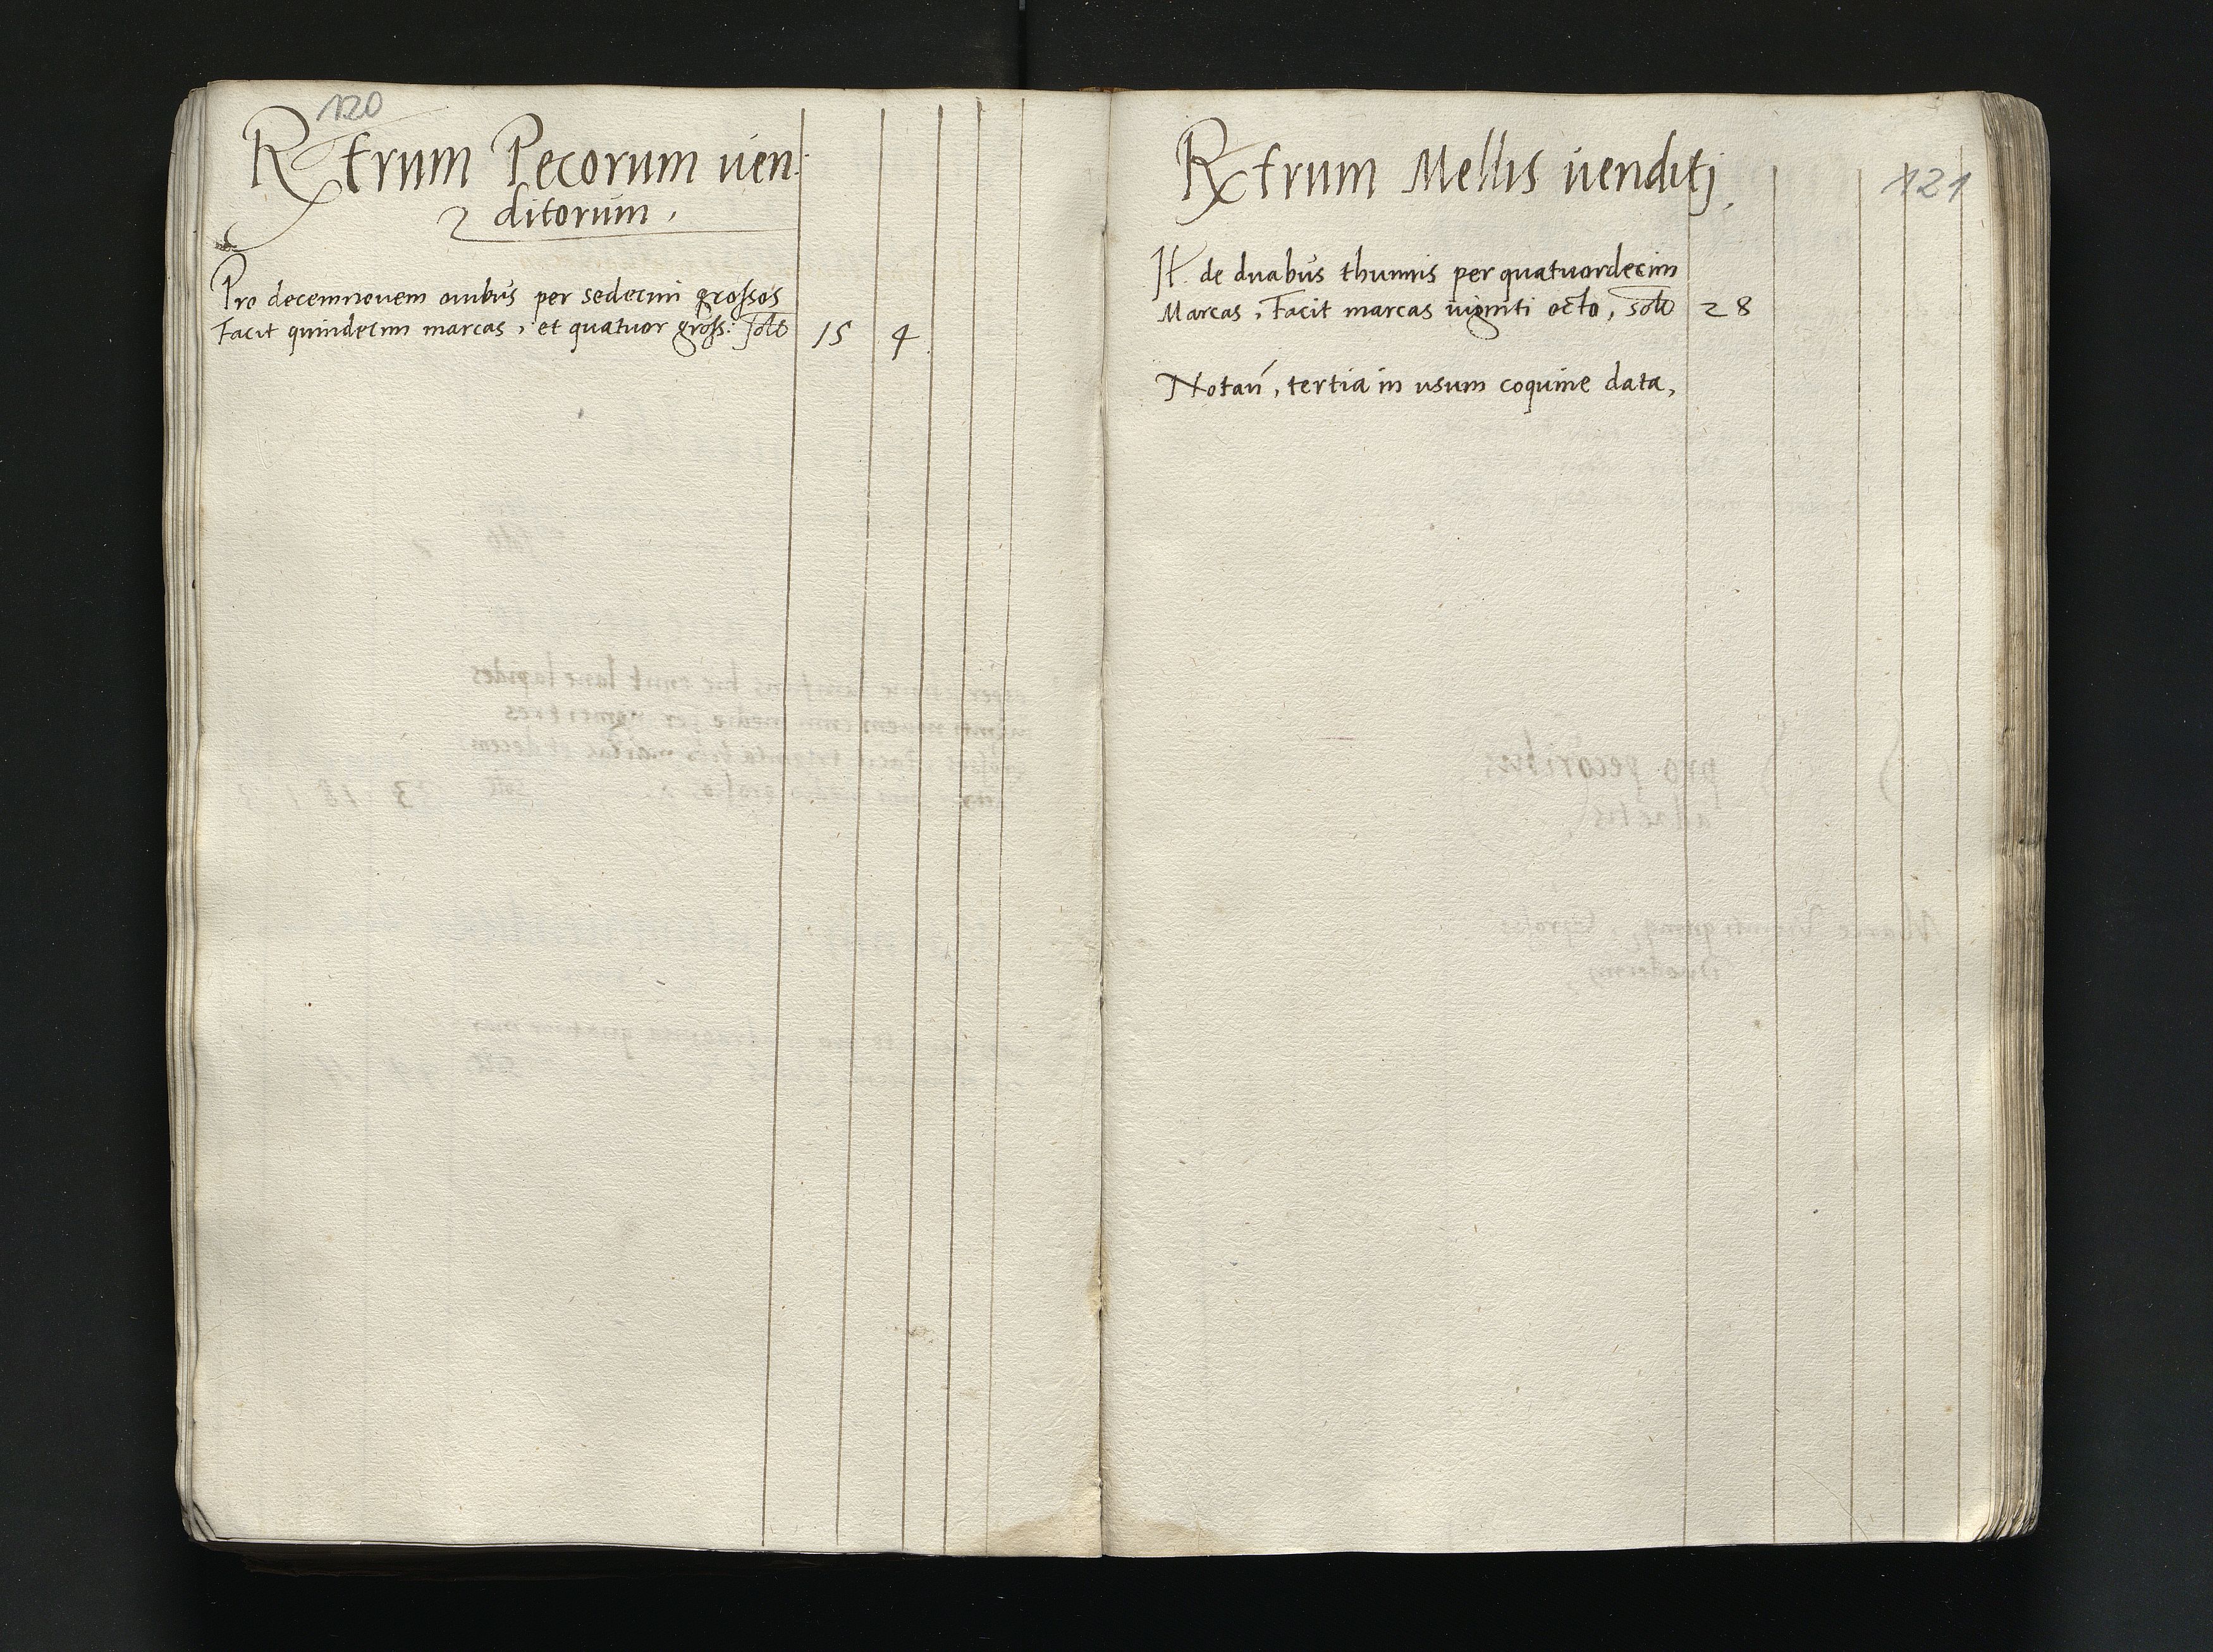 120
Rxtrum Pecorum uen:
ditorum,
Pro decemnouem ouibus per sedecim grossos
Facit quindecim marcas, et quatuor gross: solt 15 4
121
Rxtrum Mellis uenditj,
It. de duabus thunnis per quatuordecim
Marcas, Facit marcas uiginti octo, solt 28
Notan, tertia in usum coquine data,